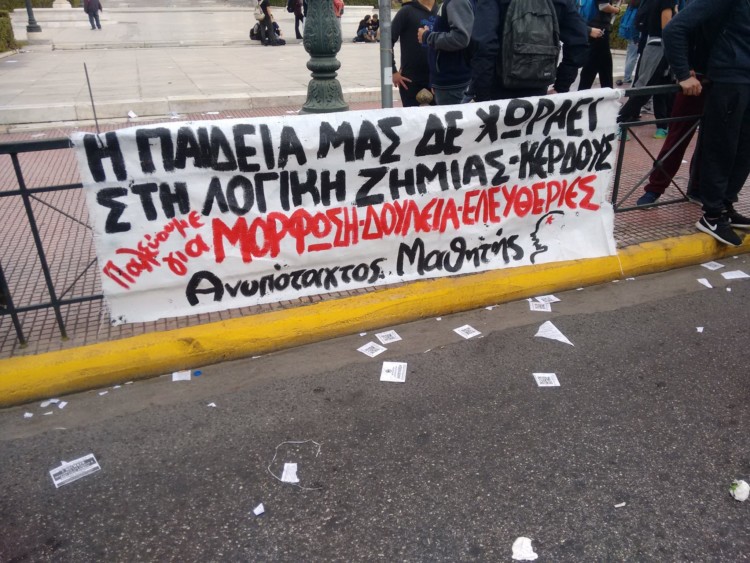 Η ΠΑΙΔΕΙΑ ΜΑΣ ΔΕ ΧΩΡΑΕΙ
ΣΤΗ ΛΟΓΙΚΗ ΖΗΜΙΑΣ-ΚΕΡΔΟΥΣ
Παλεύουμε για ΜΟΡΦΩΣΗ-ΔΟΥΛΕΙΑ-ΕΛΕΥΘΕΡΙΕΣ
Ανυπόταχτος Μαθητής